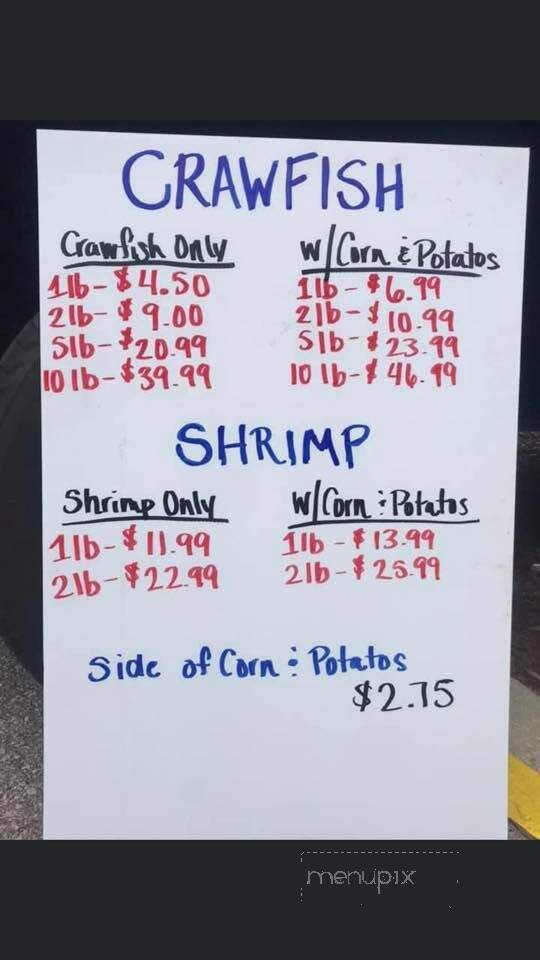 CRAWFISH
Crawfish Only
1lb - $4.50
2lb - $9.00
5lb - $20.99
10 lb - $39.99
W/Corn & Potatos
1lb - $6.99
2lb - $10.99
5lb - $23.99
10 lb - $46.99
SHRIMP
Shrimp Only
1lb - $11.99
2lb - $22.99
W/Corn & Potatos
1lb - $13.99
2lb - $25.99
Side of Corn & Potatos
$2.75
menupix